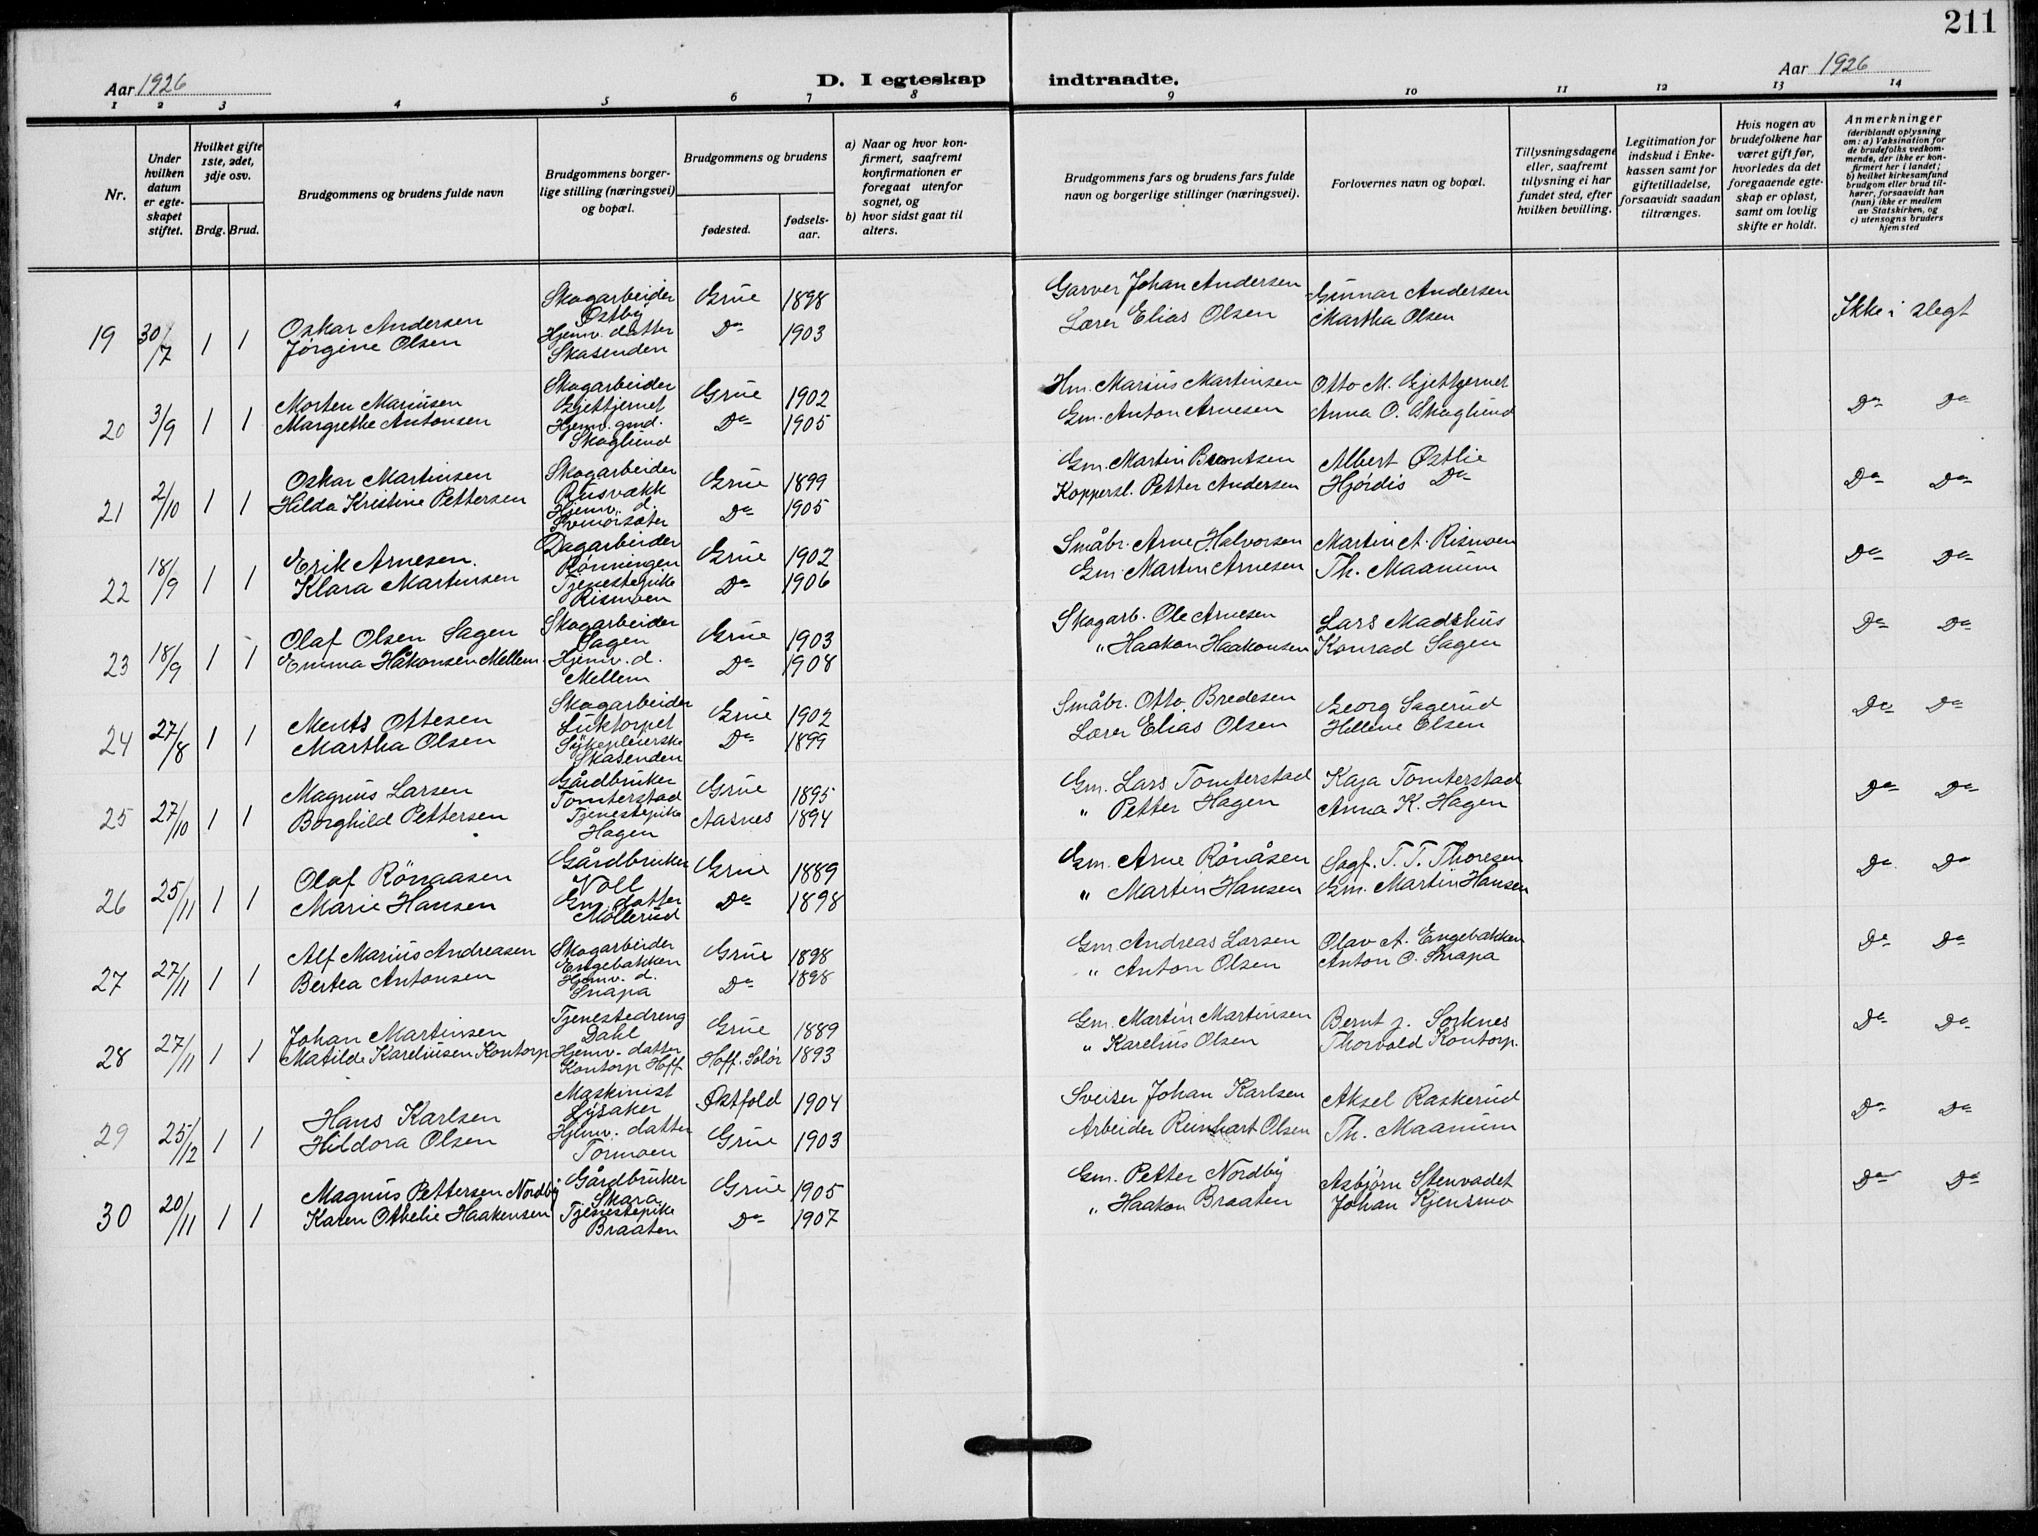 211
Aar 1926
D. I egteskap indtraadte.
Aar 1926
1 2 3 4 5 6 7 8 9 10 11 12 13 14
Nr.
Under hvilken datum er egteskapet stiftet.
Hvilket gifte 1ste, 2det, 3dje osv.
Brdg. Brud.
Brudgommens og brudens fulde navn
Brudgommens borgerlige stilling (næringsvei) og bopæl.
Brudgommens og brudens
fødested.
fødselsaar.
a) Naar og hvor konfirmert, saafremt konfirmationen er foregaat utenfor sognet, og
b) hvor sidst gaat til alters.
Brudgommens fars og brudens fars fulde navn og borgerlige stillinger (næringsvei).
Forlovernes navn og bopæl.
Tillysningsdagene eller, saafremt tillysning ei har fundet sted, efter hvilken bevilling.
Legitimation for indskud i Enkekassen samt for giftetilladelse, forsaavidt saadan tiltrænges.
Hvis nogen av brudefolkene har været gift før, hvorledes da det foregaaende egteskap er opløst, samt om lovlig skifte er holdt.
Anmerkninger
(deriblandt oplysning om: a) Vaksination for de brudefolks vedkommende, der ikke er konfirmert her i landet; b) hvilket kirkesamfund brudgom eller brud tilhører, forsaavidt han (hun) ikke er medlem av Statskirken, og c) utensogns bruders hjemsted
19 30/7 1 1 Oskar Andersen Skogarbeider Østby Grue 1898 Garver Johan Andersen Gunnar Andersen Ikke i slegt
Jørgine Olsen Hjemv. datter Skasenden Do 1903 Lærer Elias Olsen Martha Olsen
20 3/9 1 1 Morten Mariusen Skogarbeider Gjettjernet Grue 1902 Hm. Marius Martinsen Otto M. Gjettjernet Do Do
Margrethe Antonsen Hjemv. gmd. Skoglund Do 1905 Gm. Anton Arnesen Anna O. Skoglund
21 2/10 1 1 Oskar Martinsen Skogarbeider Rusvækk Grue 1899 Gm. Martin Berntsen Albert Østlie Do Do
Hilda Kristine Pettersen Hjemv. d. Do 1905 Koppersl. Petter Andersen Hjørdis Do
22 18/9 1 1 Erik Arnesen. Dagarbeider Rønningen Grue 1902 Småbr. Arne Halvorsen Martin A. Rismoen Do Do
Klara Martinsen Tjenestepike Rismoen Do 1906 Gm. Martin Arnesen Th. Maanum
23 18/9 1 1 Olaf Olsen Sagen Skogarbeider Sagen Grue 1903 Skogarb. Ole Arnesen Lars Madshus Do Do
Emma Håkonsen Mellem Hjemv. d. Mellem Do 1908 " Haakon Haakonsen Konrad Sagen
24 27/8 1 1 Ments Ottesen Skogarbeider Luktorpet Grue 1902 Småbr. Otto Bredesen Georg Sagerud Do Do
Martha Olsen Sykepleierske Skasenden Do 1899 Lærer Elias Olsen Hellene Olsen
25 27/10 1 1 Magnus Larsen Gårdbruker Tomterstad Grue 1895 Gm. Lars Tomterstad Kaja Tomterstad Do Do
Borghild Pettersen Tjenestepike Hagen Aasnes 1894 " Petter Hagen Anna K. Hagen
26 25/11 1 1 Olaf Rönaasen Gårdbruker Voll Grue 1889 Gm. Arne Rönåsen Sogf. T. T. Thoresen Do Do
Marie Hansen Gm. datter Möllerud Do 1898 " Martin Hansen Gm. Martin Hansen
27 27/11 1 1 Alf Marius Andreasen Skogarbeider Engebakken Grue 1898 Gm. Andreas Larsen Olav A. Engebakken Do Do
Bertea Antonsen Hjemv. d. Snapa Do 1898 " Anton Olsen Anton O. Snapa
28 27/11 1 1 Johan Martinsen Tjenestedreng Dahl Grue 1889 Gm. Martin Martinsen Bernt J. Sorknes Do Do
Matilde Kareliusen Kontorp Hjemv. datter Kontorp Hoff Hoff. Solör 1893 " Karelius Olsen Thorvald Kontorp.
29 25/12 1 1 Hans Karlsen Maskinist Lysaker Østfold 1904 Sveiser Johan Karlsen Aksel Raskerud Do Do
Hildora Olsen Hjemv. datter Tormoen Grue 1903 Arbeider Reinhart Olsen Th. Maanum
30 20/11 1 1 Magnus Pettersen Nordby Gårdbruker Skara Grue 1905 Gm. Petter Nordby Asbjørn Stenvadet Do Do
Karen Othelie Haakensen Tjenestepike Braaten Do 1907 " Haakon Braaten Johan Kjensmo